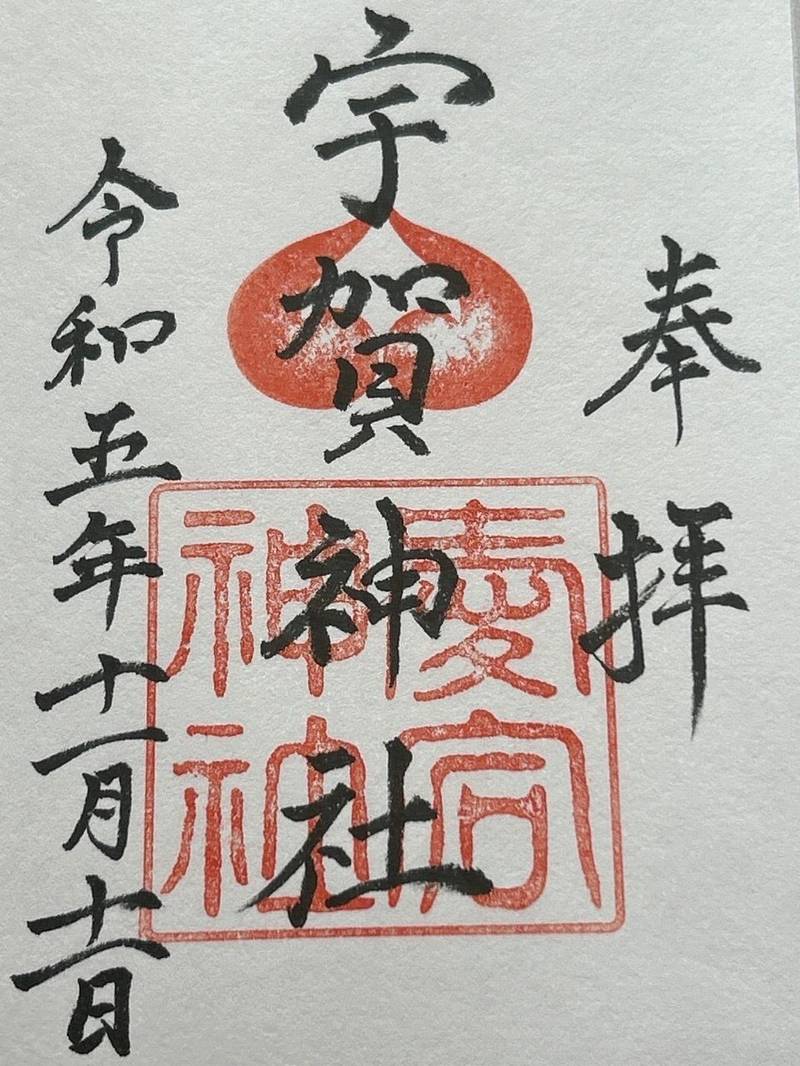 奉拝
宇賀神社
令和五年十一月十一日